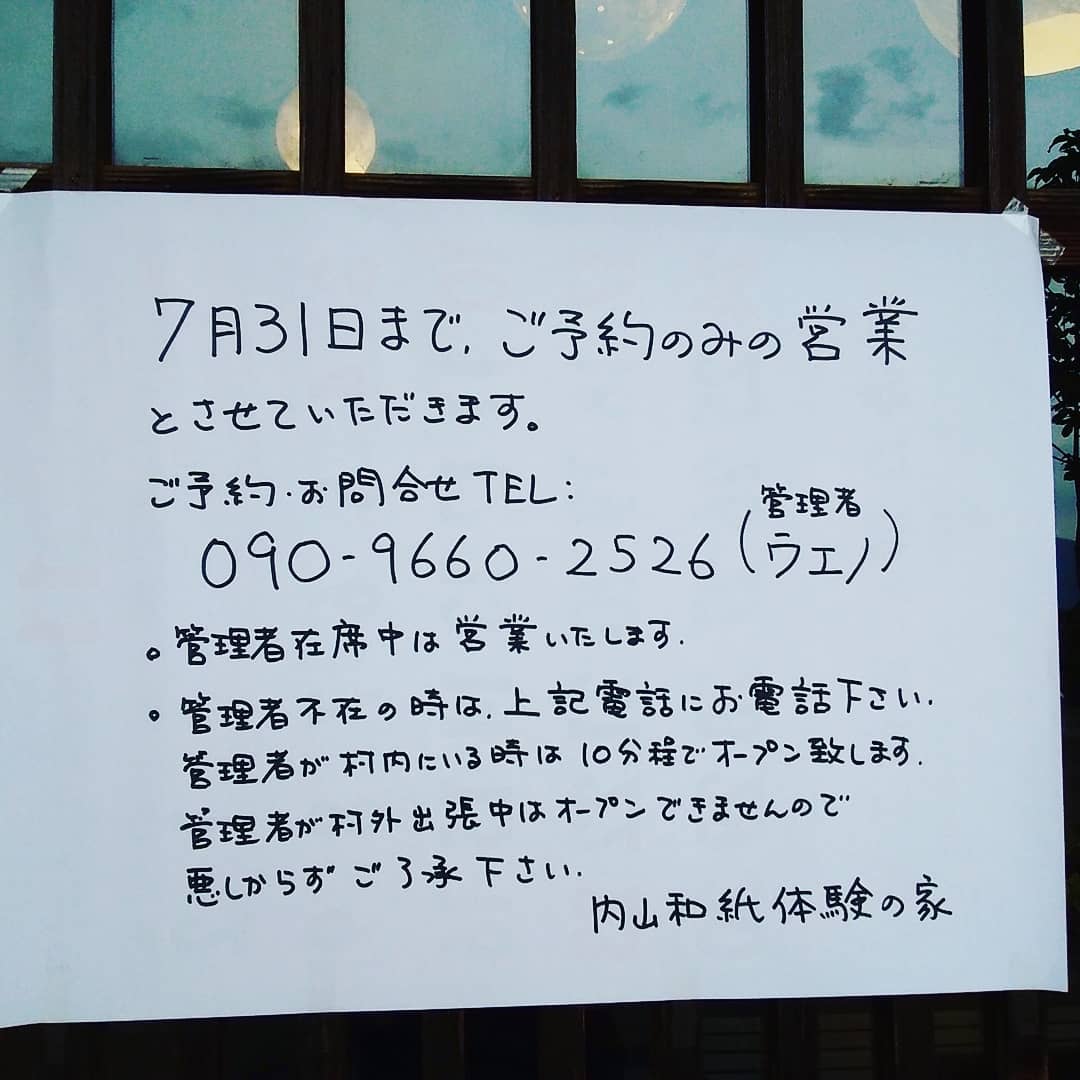 7月31日まで、ご予約のみの営業
とさせていただきます。
ご予約・お問合せTEL:
管理者
090-9660-2526(ウエノ)
。管理者在席中は営業いたします.
。管理者不在の時は、上記電話にお電話下さい.
管理者が村内にいる時は10分程でオープン致します.
管理者が村外出張中はオープンできませんので
悪しからずご了承下さい.
内山和紙体験の家